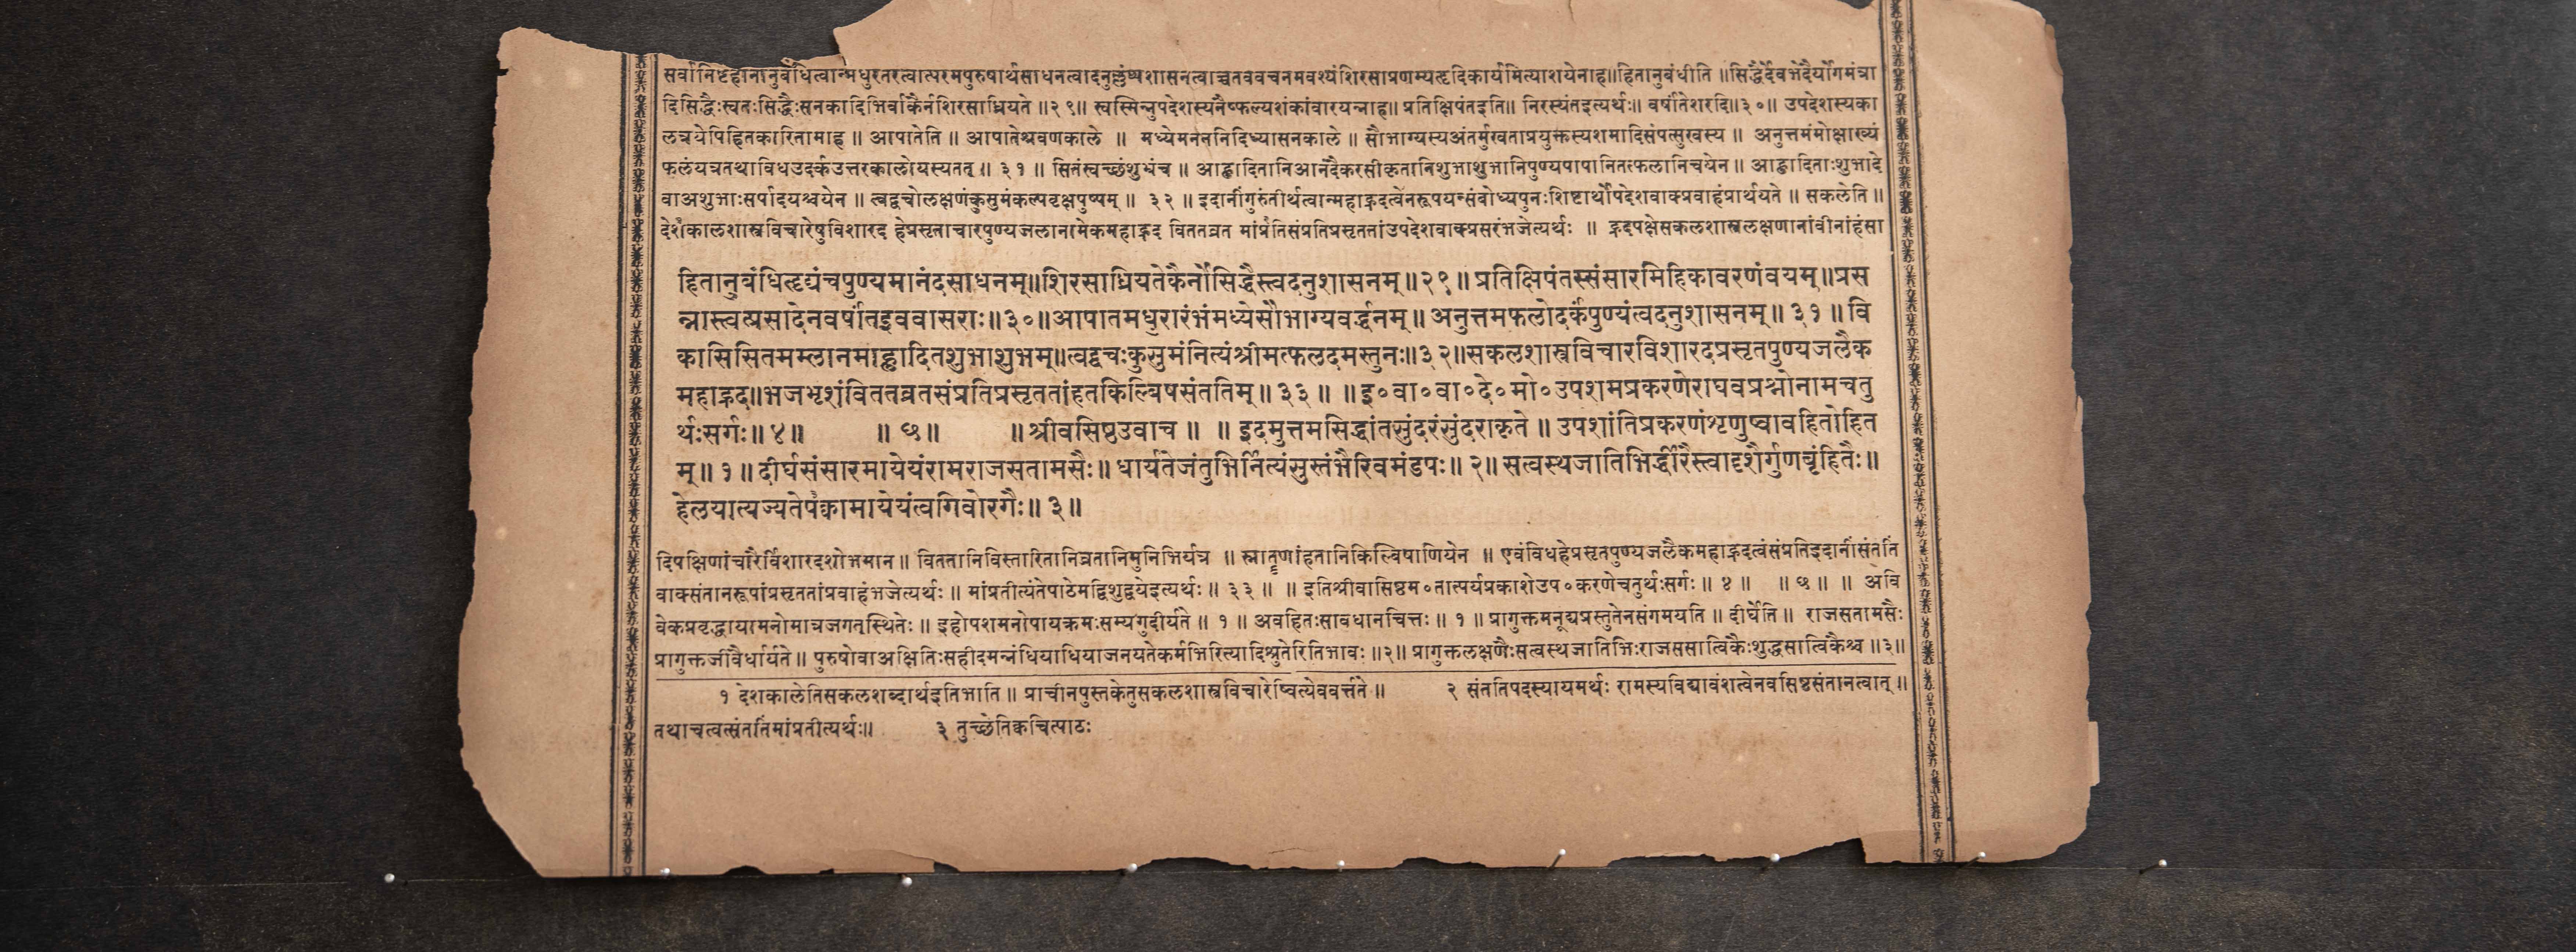 सर्वानिष्टहानानुबंधित्वान्मधुरतरत्वात्परमपुरुषार्थसाधनत्वादनुल्लंघ्यशासनत्वाच्चतववचनमवश्यंशिरसाप्रणम्यहृदिकार्यमित्याशयेनाह॥हितानुबंधीति ॥सिद्धैर्देवभेदैर्योगमंत्रा
दिसिद्धैःस्वतःसिद्धैःसनकादिभिर्वाकैर्नशिरसाध्रियते ॥२९॥ स्वस्मिन्नुपदेशस्यनैष्फल्यशंकांवारयन्नाह॥ प्रतिक्षिपंतइति॥ निरस्यंतइत्यर्थः॥ वर्षांतेशरदि॥३०॥ उपदेशस्यका
लत्रयेपिहितकारितामाह ॥ आपातेति ॥ आपातेश्रवणकाले ॥ मध्येमननेनिदिध्यासनकाले ॥ सौभाग्यस्यअंतर्मुखताप्रयुक्तस्यशमादिसंपत्सुखस्य ॥ अनुत्तमंमोक्षाख्यं
फलंयत्रतथाविधउदर्कउत्तरकालोयस्यतत् ॥ ३१ ॥ सितंस्वच्छंशुभ्रंच ॥ आह्लादितानिआनंदैकरसीकृतानिशुभाशुभानिपुण्यपापानितत्फलानिचयेन ॥ आह्लादिताःशुभादे
वाअशुभाःसर्पादयश्चयेन ॥ त्वद्वचोलक्षणंकुसुमंकल्पवृक्षपुष्पम् ॥ ३२ ॥ इदानींगुरुंतीर्थत्वान्महाह्रदत्वेनरूपयन्संबोध्यपुनःशिष्टार्थोपदेशवाक्प्रवाहंप्रार्थयते ॥ सकलेति ॥
देशकालशास्त्रविचारेषुविशारद हेप्रसृताचारपुण्यजलानामेकमहाह्रद विततव्रत मांप्रतिसंप्रतिप्रसृततांउपदेशवाक्प्रसरंभजेत्यर्थः ॥ ह्रदपक्षेसकलशास्त्रलक्षणानांवीनांहंसा
हितानुबंधिहृद्यंचपुण्यमानंदसाधनम्॥शिरसाध्रियतेकैर्नोसिद्धैस्त्वदनुशासनम् ॥२९॥ प्रतिक्षिपंतस्संसारमिहिकावरणंवयम्॥प्रस
न्नास्त्वत्प्रसादेनवर्षांतइववासराः॥३०॥आपातमधुरारंभंमध्येसौभाग्यवर्द्धनम्॥ अनुत्तमफलोदर्कंपुण्यंत्वदनुशासनम्॥ ३१ ॥ वि
कासिसितमम्लानमाह्लादितशुभाशुभम्॥त्वद्वचःकुसुमंनित्यंश्रीमत्फलदमस्तुनः॥३२॥सकलशास्त्रविचारविशारदप्रसृतपुण्यजलैक
महाह्रद॥भजभृशंविततव्रतसंप्रतिप्रसृततांहतकिल्बिषसंततिम्॥ ३३ ॥ ॥इ०वा०वा०दे०मो०उपशमप्रकरणेराघवप्रश्नोनामचतु
र्थःसर्गः॥ ४॥ ॥ छ॥ ॥श्रीवसिष्ठउवाच ॥ ॥ इदमुत्तमसिद्धांतसुंदरंसुंदराकृते ॥ उपशांतिप्रकरणंशृणुष्वावहितोहित
म्॥ १॥ दीर्घसंसारमायेयंरामराजसतामसैः॥ धार्यतेजंतुभिर्नित्यंसुस्तंभैरिवमंडपः॥ २॥ सत्वस्थजातिभिर्द्धीरैस्त्वादृशैर्गुणबृंहितैः॥
हेलयात्यज्यतेपक्वामायेयंत्वगिवोरगैः॥ ३॥
दिपक्षिणांचारैर्विशारदशोभमान ॥ विततानिविस्तारितानिव्रतानिमुनिभिर्यत्र ॥ स्नातॄणांहतानिकिल्बिषाणियेन ॥ एवंविधहेप्रसृतपुण्यजलैकमहाह्रदत्वंसंप्रतिइदानींसंततिं
वाक्संतानरूपांप्रसृततांप्रवाहंभजेत्यर्थः ॥ मांप्रतीत्यंतेपाठेमद्विशुद्धयेइत्यर्थः ॥ ३३ ॥ ॥ इतिश्रीवासिष्ठम०तात्पर्यप्रकाशेउप०करणेचतुर्थःसर्गः ॥ ४ ॥ ॥ छ ॥ ॥ अवि
वेकप्ररूढायामनोमात्रजगत्स्थितेः ॥ इहोपशमनोपायक्रमःसम्यगुदीर्यते ॥ १ ॥ अवहितःसावधानचित्तः ॥ १ ॥ प्रागुक्तमनूद्यप्रस्तुतेनसंगमयति ॥ दीर्घेति ॥ राजसतामसैः
प्रागुक्तजीवैर्धार्यते ॥ पुरुषोवाअक्षितिःसहीदमन्नंधियाधियाजनयतेकर्मभिरित्यादिश्रुतेरितिभावः ॥२॥ प्रागुक्तलक्षणैःसत्वस्थजातिभिःराजससात्विकैःशुद्धसात्विकैश्च ॥३॥
१ देशकालेतिसकलशब्दार्थइतिभाति ॥ प्राचीनपुस्तकेतुसकलशास्त्रविचारेष्वित्येववर्त्तते ॥ २ संततिपदस्यायमर्थः रामस्यविद्यावंशत्वेनवसिष्ठसंतानत्वात् ॥
तथाचत्वत्संततिंमांप्रतीत्यर्थः॥ ३ तुच्छेतिक्वचित्पाठः